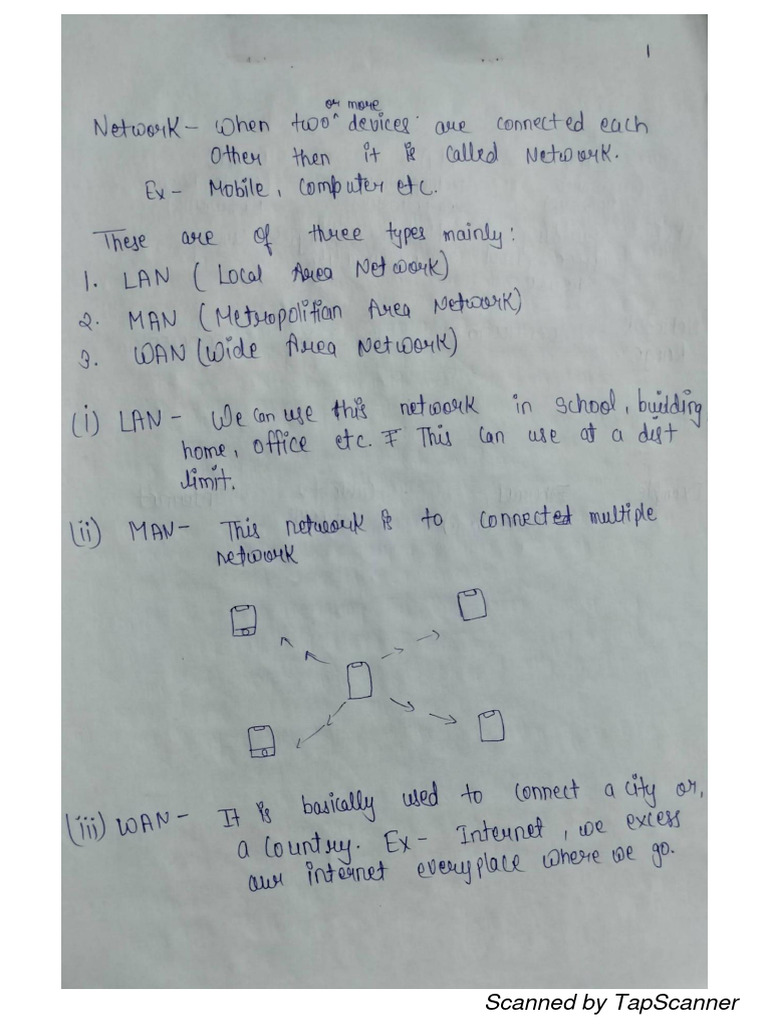 1
or more
Network - When two^ devices are connected each
Other then it is called Network.
Ex - Mobile, Computer etc.
These are of three types mainly:
1. LAN ( Local Area Network)
2. MAN (Metropolitian Area Network)
3. WAN (Wide Area Network)
(i) LAN - We can use this network in school, building
home, office etc. This can use at a dist
limit.
(ii) MAN - This network is to connected multiple
network
(iii) WAN - It is basically used to connect a city or,
a country. Ex - Internet, we excess
our internet everyplace where we go.
Scanned by TapScanner